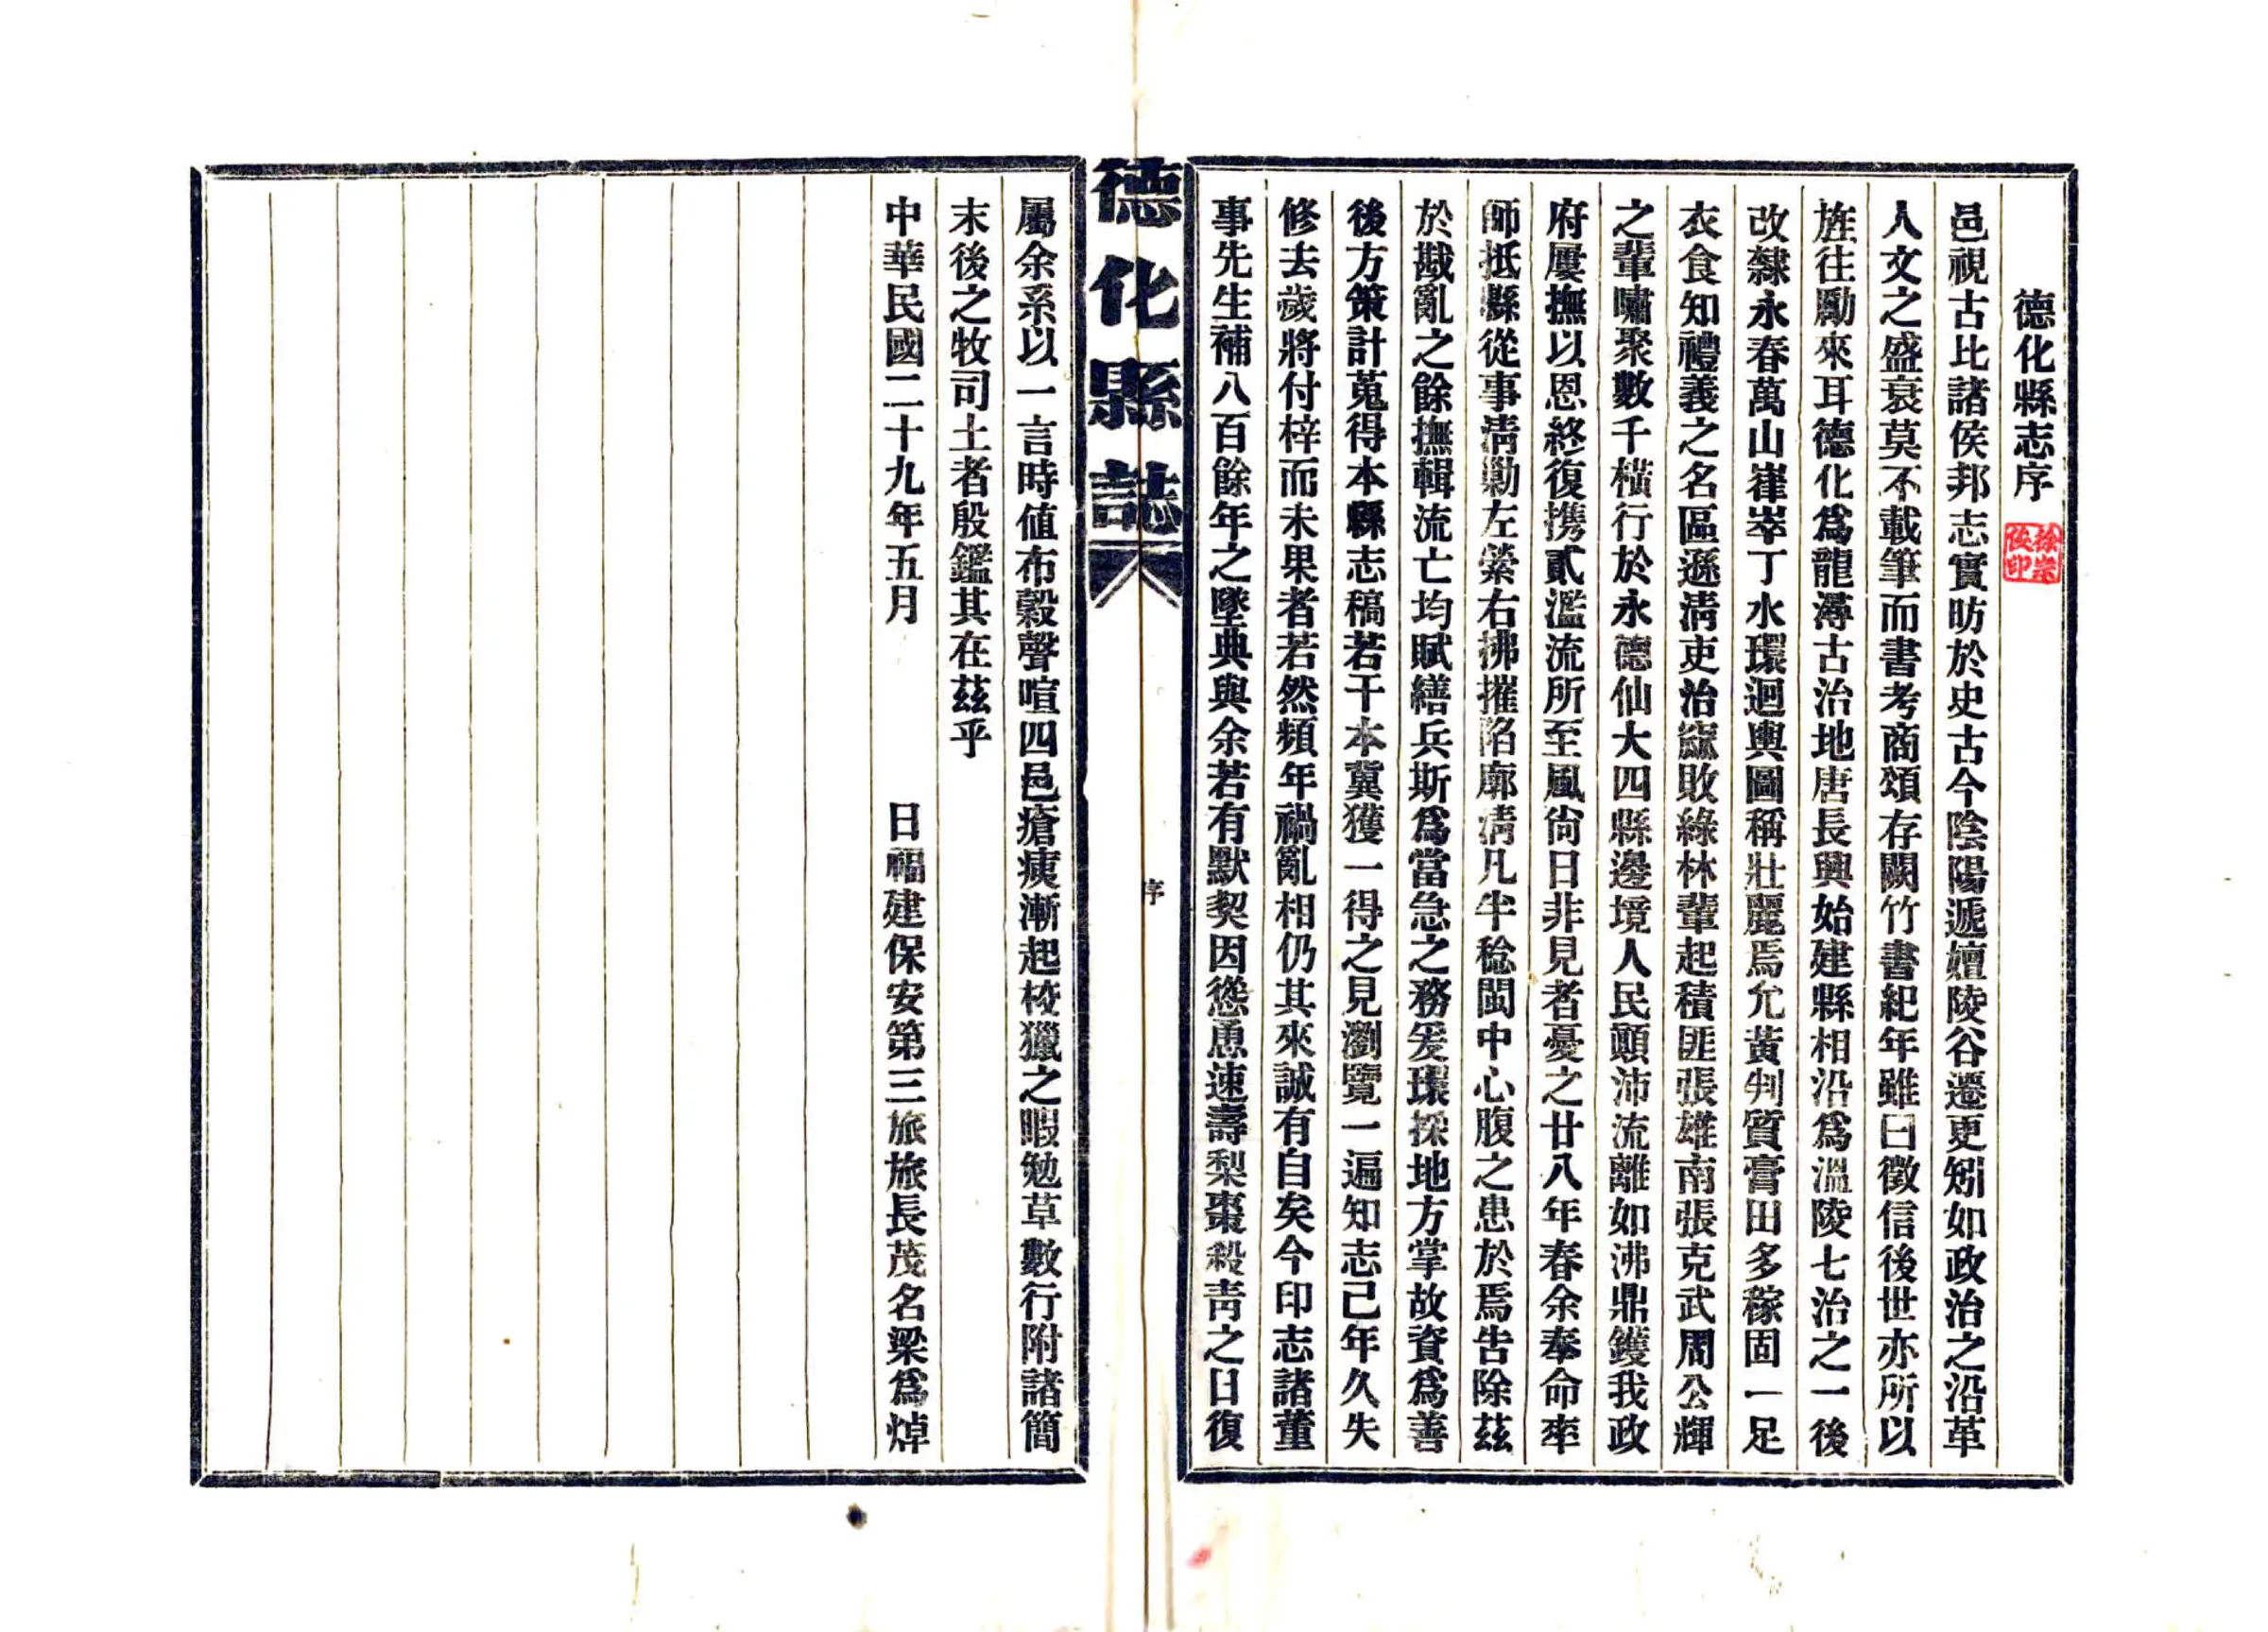 德化縣志序
徐崇
後印
邑視古比諸侯邦志實昉於史古今陰陽遞嬗陵谷遷更矧如政治之沿革
人文之盛衰莫不載筆而書考商頌存闕竹書紀年雖曰徵信後世亦所以
旌往勵來耳德化爲龍潯古治地唐長興始建縣相沿爲溫陵七治之一後
改隸永春萬山嵂崒丁水環迴輿圖稱壯麗焉允黃判質膏田多稼固一足
衣食知禮義之名區遜淸吏治窳敗綠林輩起積匪張雄南張克武周公輝
之輩嘯聚數千橫行於永德仙大四縣邊境人民顚沛流離如沸鼎鑊我政
府屢撫以恩終復携貳濫流所至風尙日非見者憂之廿八年春余奉命率
師抵縣從事淸勦左縈右拂摧陷廓淸凡半稔閩中心腹之患於焉告除茲
於戡亂之餘撫輯流亡均賦繕兵斯爲當急之務爰環採地方掌故資爲善
後方策計蒐得本縣志稿若干本冀獲一得之見瀏覽一遍知志已年久失
修去歲將付梓而未果者若然頻年禍亂相仍其來誠有自矣今印志諸董
事先生補八百餘年之墜典與余若有默契因慫恿速壽梨棗殺靑之日復
德化縣誌
序
屬余系以一言時値布穀聲喧四邑瘡痍漸起校獵之暇勉草數行附諸簡
末後之牧司土者殷鑑其在茲乎
中華民國二十九年五月 日福建保安第三旅旅長茂名梁爲焯